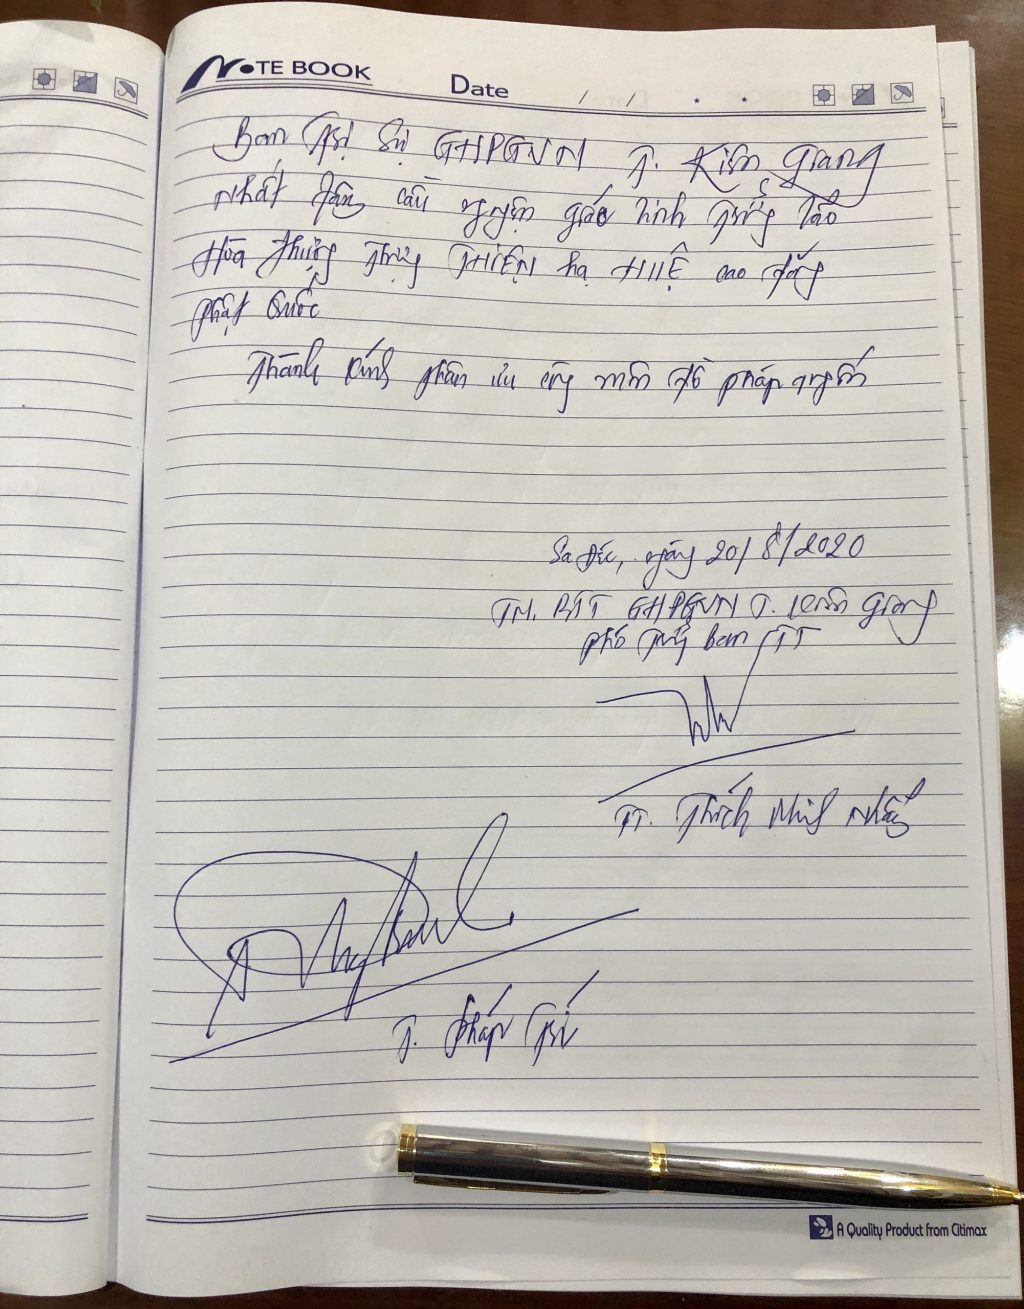 NOTE BOOK
Date / /
Ban Trị Sự GHPGVN T. Kiên Giang
nhất tâm cầu nguyện giác linh Trưởng lão
Hòa thượng Thượng THIỆN hạ HUỆ cao đăng
Phật Quốc
Thành kính phân ưu cùng môn đồ pháp quyến
Sa Đéc, ngày 20/8/2020
TM. BTT GHPGVN T. Kiên Giang
Phó Trưởng Ban TT
TT. Thích Minh Nhẫn
T. Pháp Trí
A Quality Product from Citimax